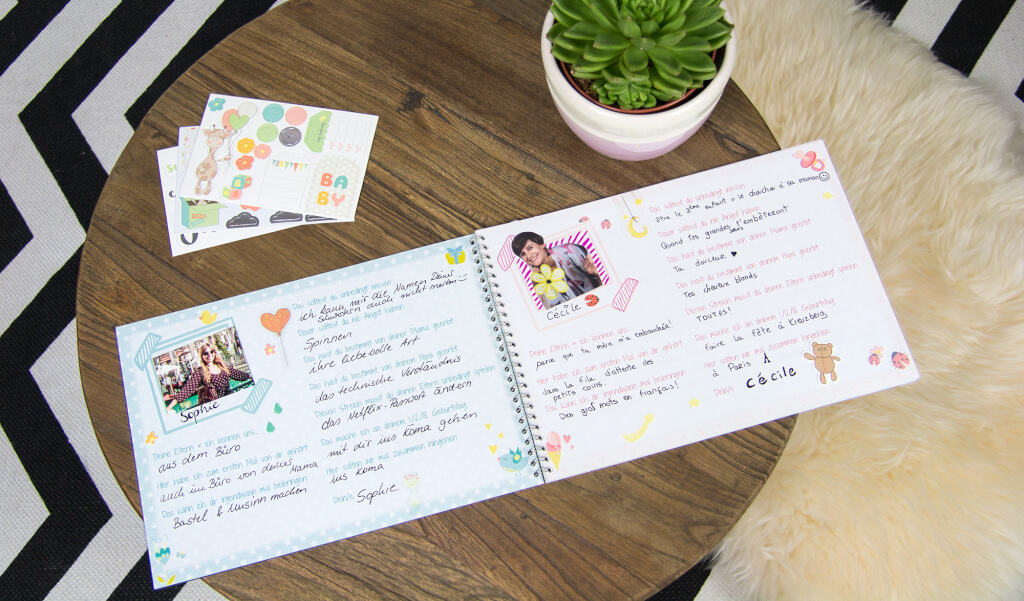 BA
BY
Sophie
Deine Eltern + ich kennen uns...
aus dem Büro
Hier habe ich zum ersten Mal von dir gehört
auch im Büro von deiner Mama
Das kann ich dir irgendwann mal beibringen
Bastel & Unsinn machen
Das solltest du unbedingt wissen
ich kann mir die Namen Deiner
auch nicht merken
Davor solltest du nie Angst haben
Spinnen
Das hast du bestimmt von deiner Mama geerbt
ihre liebevolle Art
Das hast du bestimmt von deinem Papa geerbt
das technische Verständnis
Diesen Streich musst du deinen Eltern unbedingt spielen
das Netflix-Passwort ändern
Das mache ich an deinem 1/2./18. Geburtstag
mit dir ins Köma gehen
Hier sollten wir mal zusammen hingehen
ins Koma
Dein/e Sophie
Cécile
Deine Eltern + ich kennen uns...
parce que ta mère m'a embauchée!
Hier habe ich zum ersten Mal von dir gehört
dans la file d'attente des
petits coins.
Das kann ich dir irgendwann mal beibringen
Des gros mots en français!
Das solltest du unbedingt wissen
être le 3ème enfant = le chouchou à sa maman
Davor solltest du nie Angst haben
Quand tes grandes sœurs t'embêteront
Das hast du bestimmt von deiner Mama geerbt
Ta douceur ♥
Das hast du bestimmt von deinem Papa geerbt
Tes cheveux blonds
Diesen Streich musst du deinen Eltern unbedingt spielen
TOUTES!
Das mache ich an deinem 1/2./18. Geburtstag
faire la fête à Kreuzberg
Hier sollten wir mal zusammen hingehen
à Paris
Dein/e Cécile